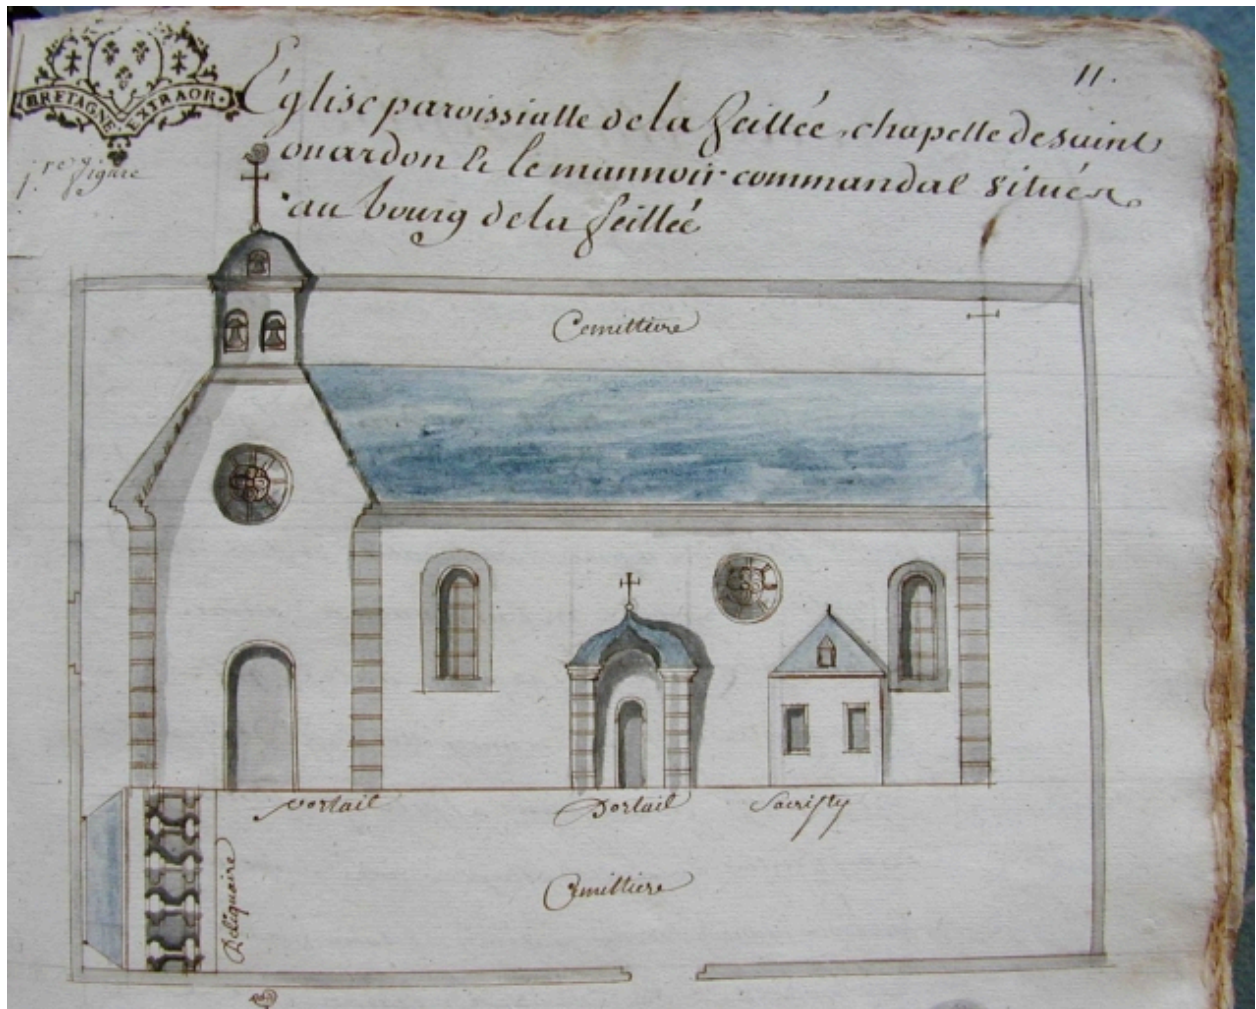 11.
BRETAGNE EXTRAOR.
1.re figure
Église paroissialle de la feillée, chapelle de saint
ouardon & le mannoir commandal situés
au bourg de la feillée
Cemittiere
portail
Portail
Sacristy
Cemittiere
Reliquaire